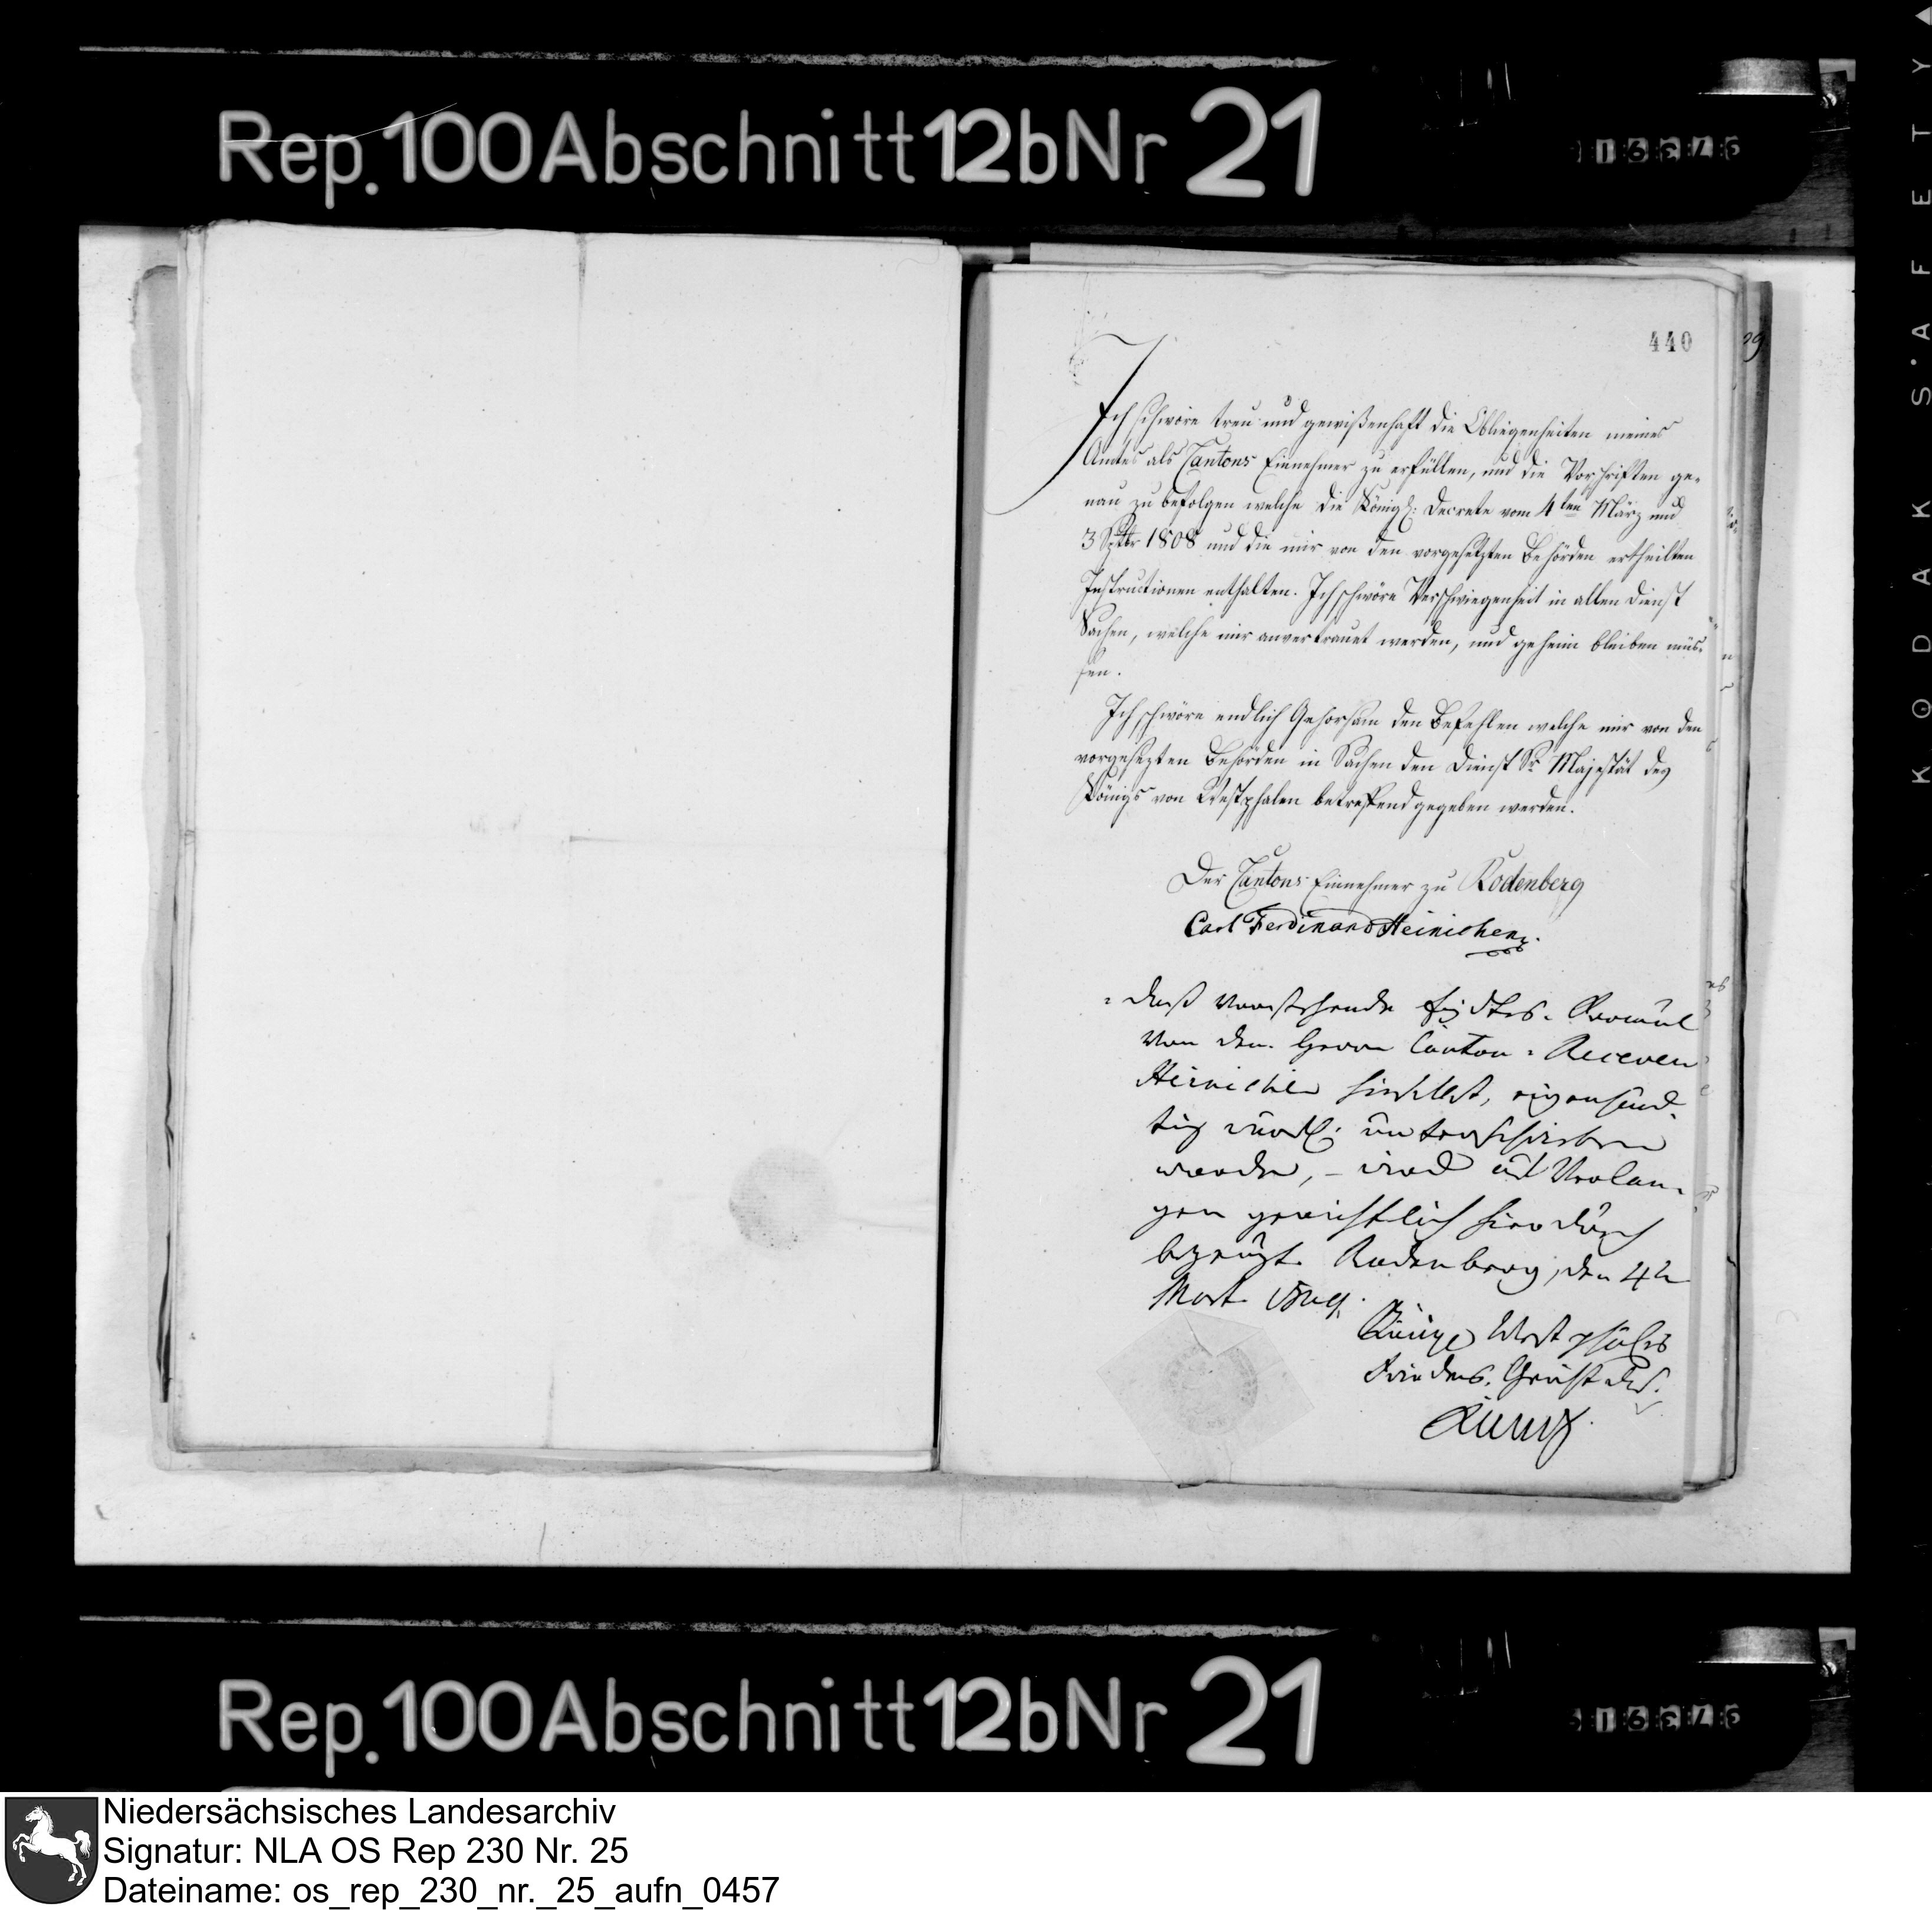 Rep. 100 Abschnitt 12b Nr 21
440
Ich schwöre treu und gewißenhaft die Obliegenheiten meines
Amtes als Cantons Einnehmer zu erfüllen, und die Vorschriften ge-
nau zu befolgen welche die Königl: Decrete vom 4ten März und
3 Sptbr 1808 und die mir von den vorgesetzten Behörden ertheilten
Instructionen enthalten. Ich schwöre Verschwiegenheit in allen Dienst
Sachen, welche mir anvertrauet werden, und geheim bleiben müs-
sen.
Ich schwöre endlich Gehorsam den Befehlen welche mir von den
vorgesezten Behörden in Sachen den Dienst Sr Majestät des
Königs von Westphalen betreffend gegeben werden.
Der Cantons Einnehmer zu Rodenberg
Carl Ferdinand Heinichen.
Daß vorstehende Eydes-Formul
von dem Herrn Canton-Receveur
Heinichen hieselbst, eigenhän-
tig unterschrieben
worden, - wird auf Verlan-
gen gerichtlich hierdurch
bezeugt. Rodenberg, den 4n
Königl Westphäls
Friedens-Gericht das.
KODAK SAFETY
Rep. 100 Abschnitt 12b Nr 21
Niedersächsisches Landesarchiv
Signatur: NLA OS Rep 230 Nr. 25
Dateiname: os_rep_230_nr._25_aufn_0457